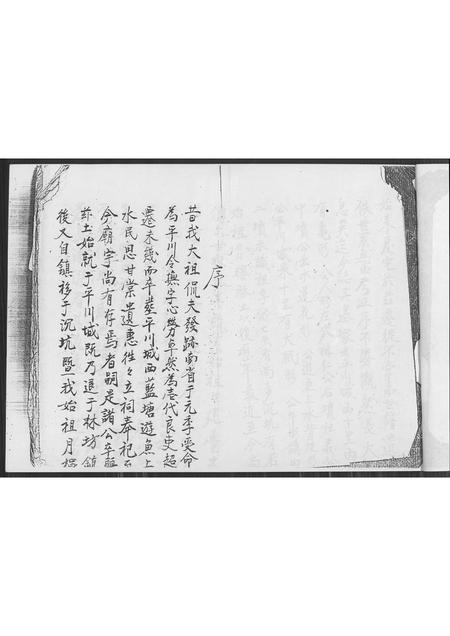 序
昔我大祖侃夫發跡南省于元季受命
為平川令撫字心勞卓然為壱代良吏超
遷未幾而卒塟平川城西藍塘遊魚上
水民思甘棠遺惠徃々立祠奉祀
今廟宇尚有存焉者嗣是諸公卒
玆土始就于平川城既乃遷于林坊鎮
後又自鎮移于沉坑暨我始祖月